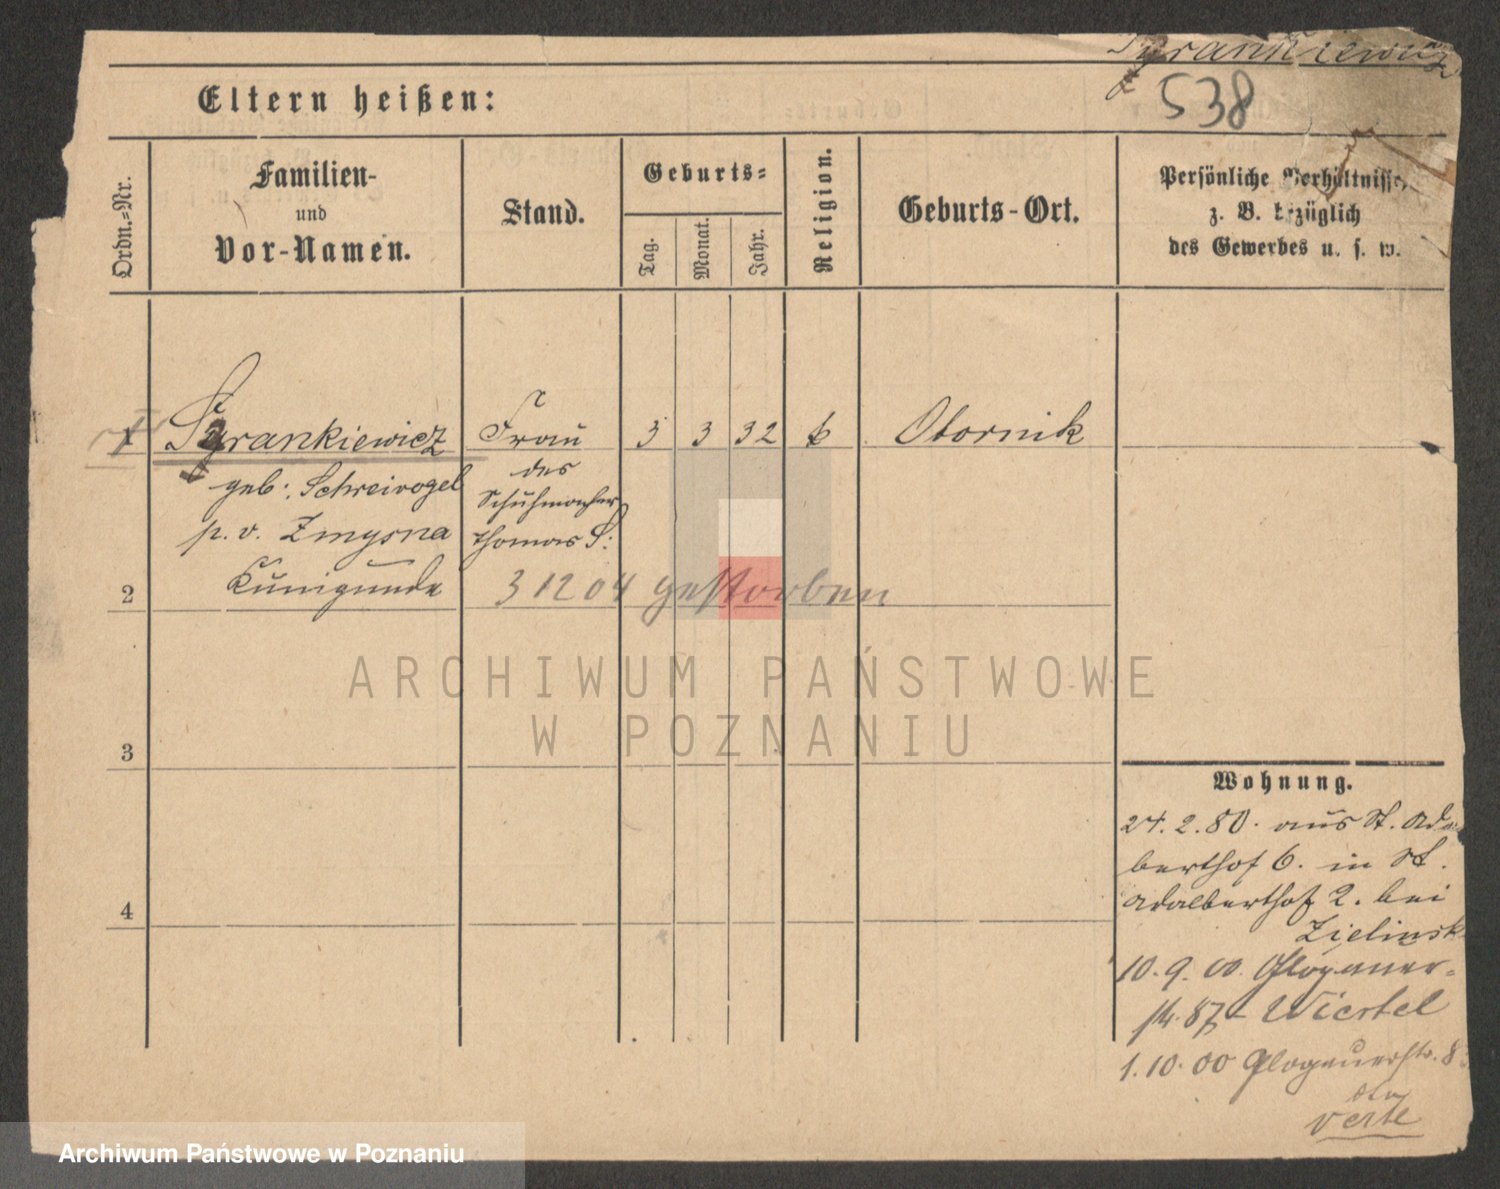 Szrankiewicz
538
Eltern heißen:
Ordn.=Nr.
Familien-
und
Vor-Namen.
Stand.
Geburts=
Tag.
Monat.
Jahr.
Religion.
Geburts-Ort.
Persönliche Verhältnisse
z. B. bezüglich
des Gewerbes u. s. w.
1
Szrankiewicz
geb: Schreivogel
p. v. Zmysna
Kunigunde
Frau
des
Schuhmacher
Thomas S:
3 3 32 k
Obornik
3 12 04 gestorben
2
3
4
Wohnung.
24.2.80. aus St. Adal
berthof 6. in St.
Adalberthof 2. bei
Zielinsk
10.9.00. Glogauer-
str. 87 Wiertel
1.10.00 Glogauerstr. 8
verte
ARCHIWUM PAŃSTWOWE
W POZNANIU
Archiwum Państwowe w Poznaniu